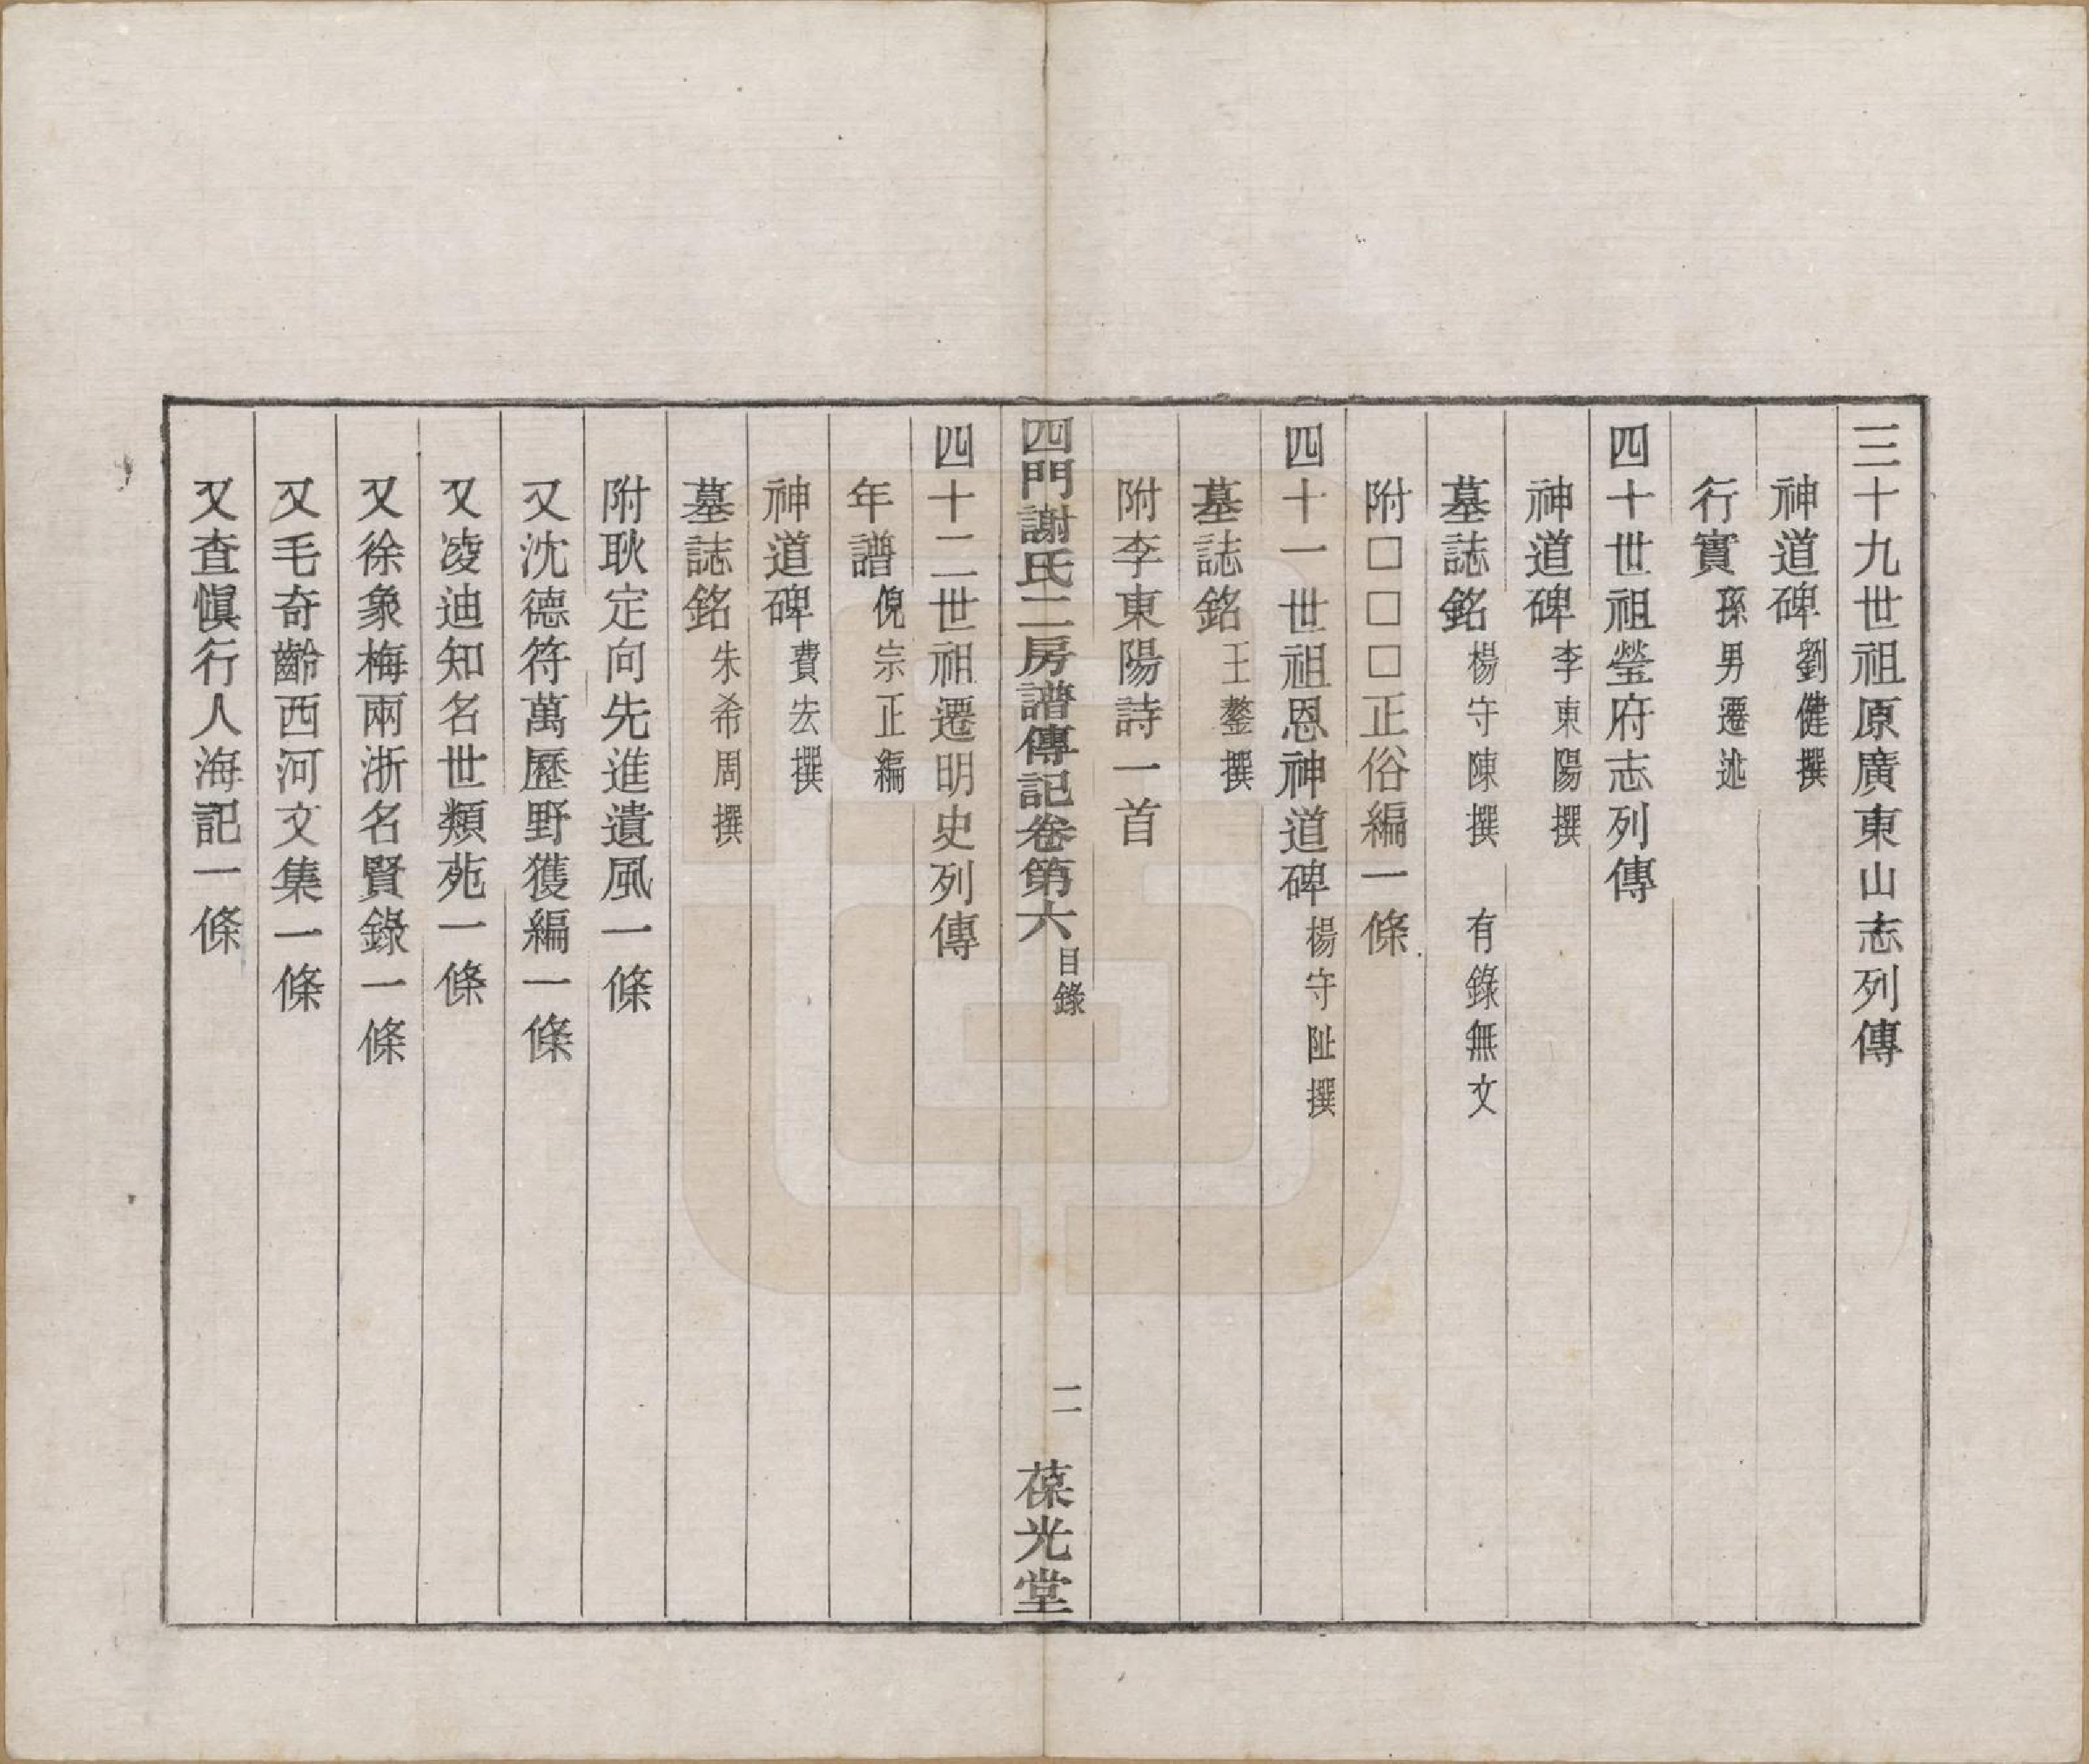 三十九世祖原廣東山志列傳
神道碑劉健撰
行實孫男遷述
四十世祖瑩府志列傳
神道碑李東陽撰
墓誌銘楊守陳撰 有錄無文
附□□□正俗編一條
四十一世祖恩神道碑楊守阯撰
墓誌銘王鏊撰
附李東陽詩一首
四門謝氏二房譜傳記卷第六目錄 二 葆光堂
四十二世祖遷明史列傳
年譜倪宗正編
神道碑費宏撰
墓誌銘朱希周撰
附耿定向先進遺風一條
又沈德符萬歷野獲編一條
又凌迪知名世類苑一條
又徐象梅兩浙名賢錄一條
又毛奇齡西河文集一條
又查愼行人海記一條